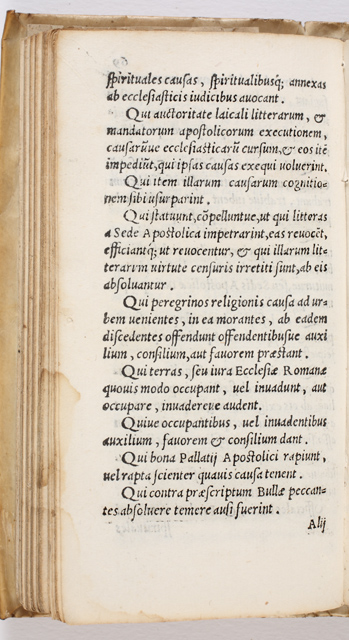 ſpirituales cauſas, ſpiritualibusq; annexas
ab eccleſiaſticis iudicibus auocant.
Qui auctoritate laicali litterarum, &
mandatorum apoſtolicorum executionem,
cauſarũue eccleſiaſticarũ curſum, & eos itẽ
impediũt, qui ipſas cauſas exequi voluerint.
Qui item illarum cauſarum cognitio-
nem ſibi uſurparint.
Qui ſtatuunt, cõpelluntue, ut qui litteras
a Sede Apoſtolica impetrarint, eas reuocẽt,
efficiantq; ut reuocentur, & qui illarum lit-
terarum uirtute cenſuris irretiti ſunt, ab eis
abſoluantur.
Qui peregrinos religionis cauſa ad ur-
bem uenientes, in ea morantes, ab eadem
diſcedentes offendunt offendentibuſue auxi
lium, conſilium, aut fauorem præſtant.
Qui terras, ſeu iura Eccleſiæ Romanæ
quouis modo occupant, uel inuadunt, aut
occupare, inuadereue audent.
Quiue occupantibus, uel inuadentibus
auxilium, fauorem & conſilium dant.
Qui bona Pallatij Apoſtolici rapiunt,
uel rapta ſcienter quauis cauſa tenent.
Qui contra præſcriptum Bullæ peccan-
tes abſoluere temere auſi fuerint.
Alij